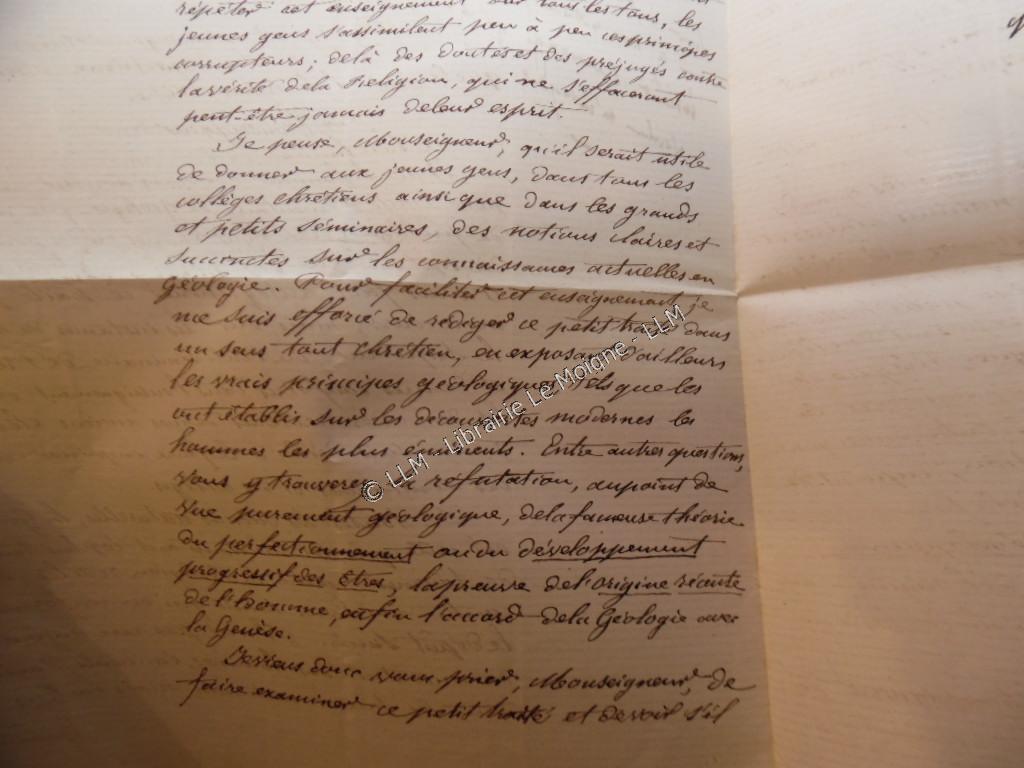 répéter cet enseignement sur tous les tons, les
jeunes gens s'assimilent peu à peu ces principes
corrupteurs; de là des doutes et des préjugés contre
la vérité de la Religion, qui ne s'effaceront
peut-être jamais de leur esprit.
Je pense, Monseigneur, qu'il serait utile
de donner aux jeunes gens, dans tous les
collèges chrétiens ainsi que dans les grands
et petits séminaires, des notions claires et
succinctes sur les connaissances actuelles en
Géologie. Pour faciliter cet enseignement, je
me suis efforcé de rédiger ce petit traité dans
un sens tout chrétien, en exposant d'ailleurs
les vrais principes géologiques tels que les
ont établis sur les découvertes modernes les
hommes les plus éminents. Entre autres questions,
vous y trouverez la réfutation, au point de
vue purement géologique, de la fameuse théorie
du perfectionnement ou du développement
progressif des êtres, la preuve de l'origine récente
de l'homme, enfin l'accord de la Géologie avec
la Genèse.
Je viens donc vous prier, Monseigneur, de
faire examiner ce petit traité et de voir s'il
© LLM - Librairie Le Moigne - LLM